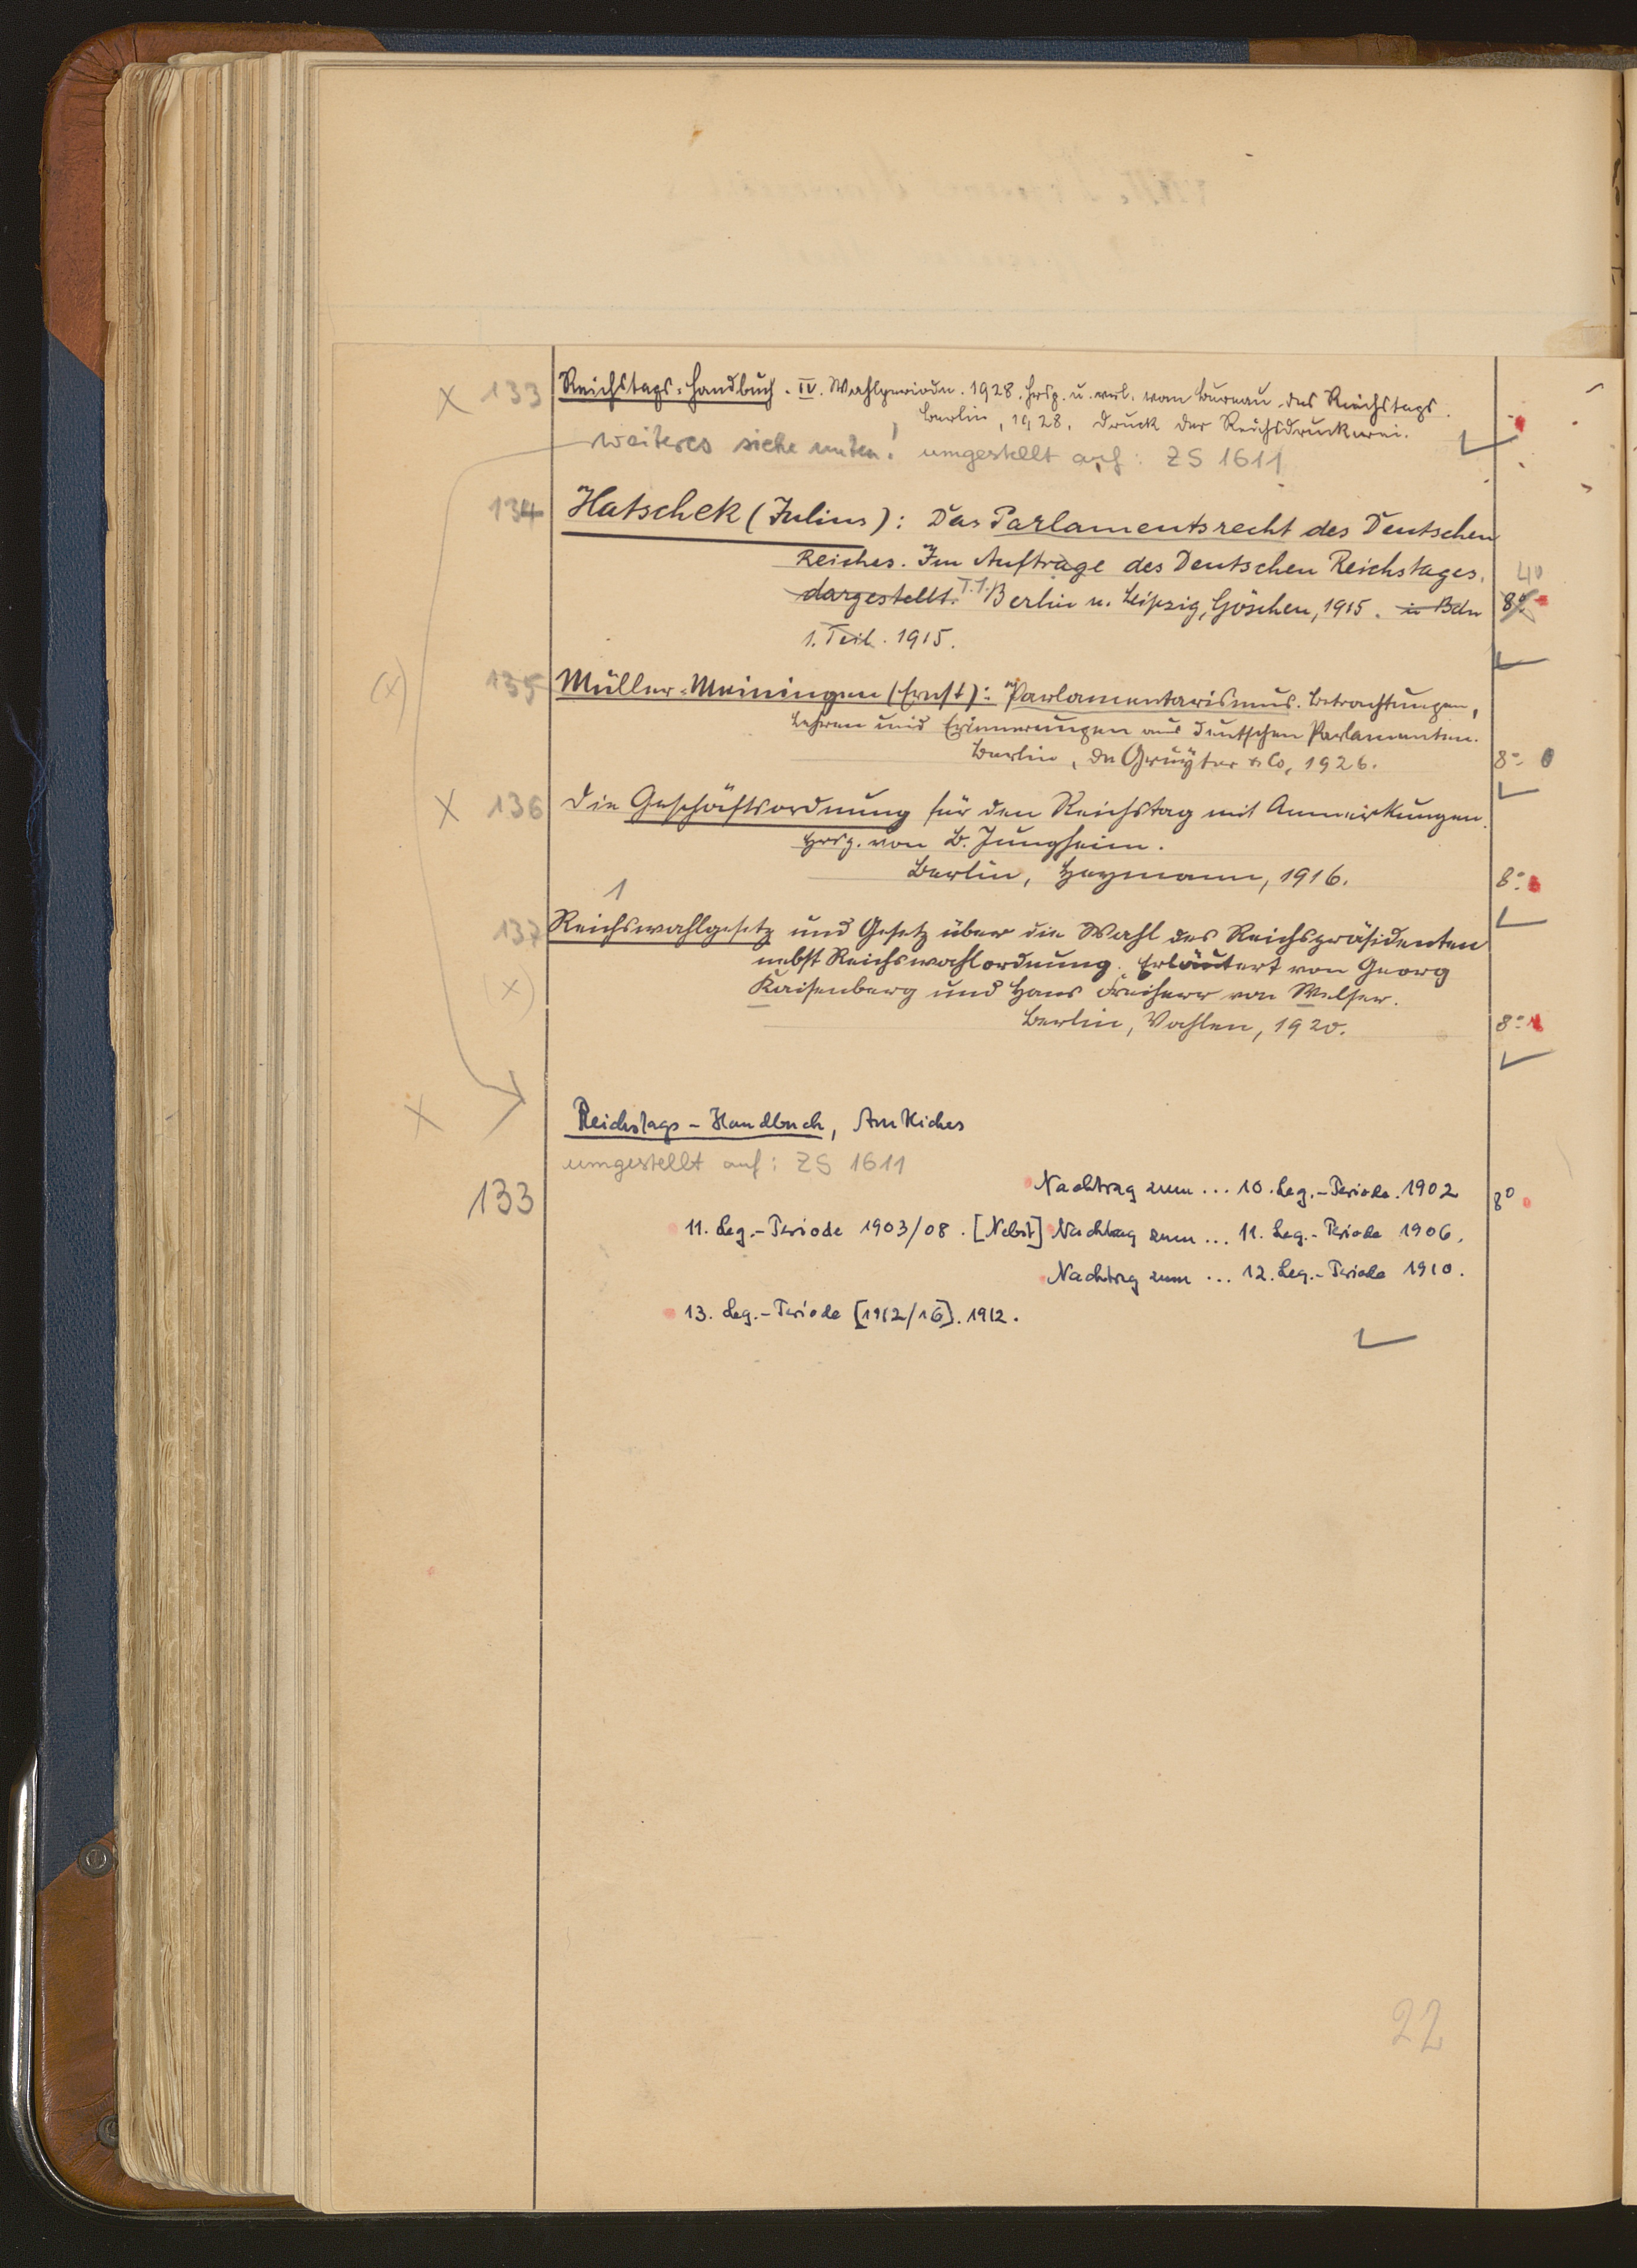 x 133 Reichstags-Handbuch. IV. Wahlperiode. 1928. Hrsg. u. verl. vom Bureau des Reichstags.
Berlin, 1928. Druck der Reichsdruckerei.
weiteres siehe unten! umgestellt auf: ZS 1611
134 Hatschek (Julius): Das Parlamentsrecht des Deutschen
Reiches. Im Auftrage des Deutschen Reichstages. 4°
dargestellt. T. 1. Berlin u. Leipzig, Göschen, 1915. in Bdn 8°
1. Teil. 1915.
(x) 135 Müller-Meiningen (Ernst): Parlamentarismus. Betrachtungen,
Lehren und Erinnerungen aus deutschen Parlamenten.
Berlin, De Gruyter & Co, 1926. 8°
x 136 Die Geschäftsordnung für den Reichstag mit Anmerkungen.
Hrsg. von B. Jungheim.
Berlin, Heymann, 1916. 8°
1
137 Reichswahlgesetz und Gesetz über die Wahl des Reichspräsidenten
nebst Reichswahlordnung. Erläutert von Georg
(x) Kaisenberg und Hans Freiherr von Welser.
Berlin, Vahlen, 1920. 8°
x Reichstags-Handbuch, Amtliches
umgestellt auf: ZS 1611
133 Nachtrag zum ... 10. Leg.-Periode. 1902 8°
11. Leg.-Periode 1903/08. [Nebst] Nachtrag zum ... 11. Leg.-Periode 1906.
Nachtrag zum ... 12. Leg.-Periode 1910.
13. Leg.-Periode [1912/16]. 1912.
22